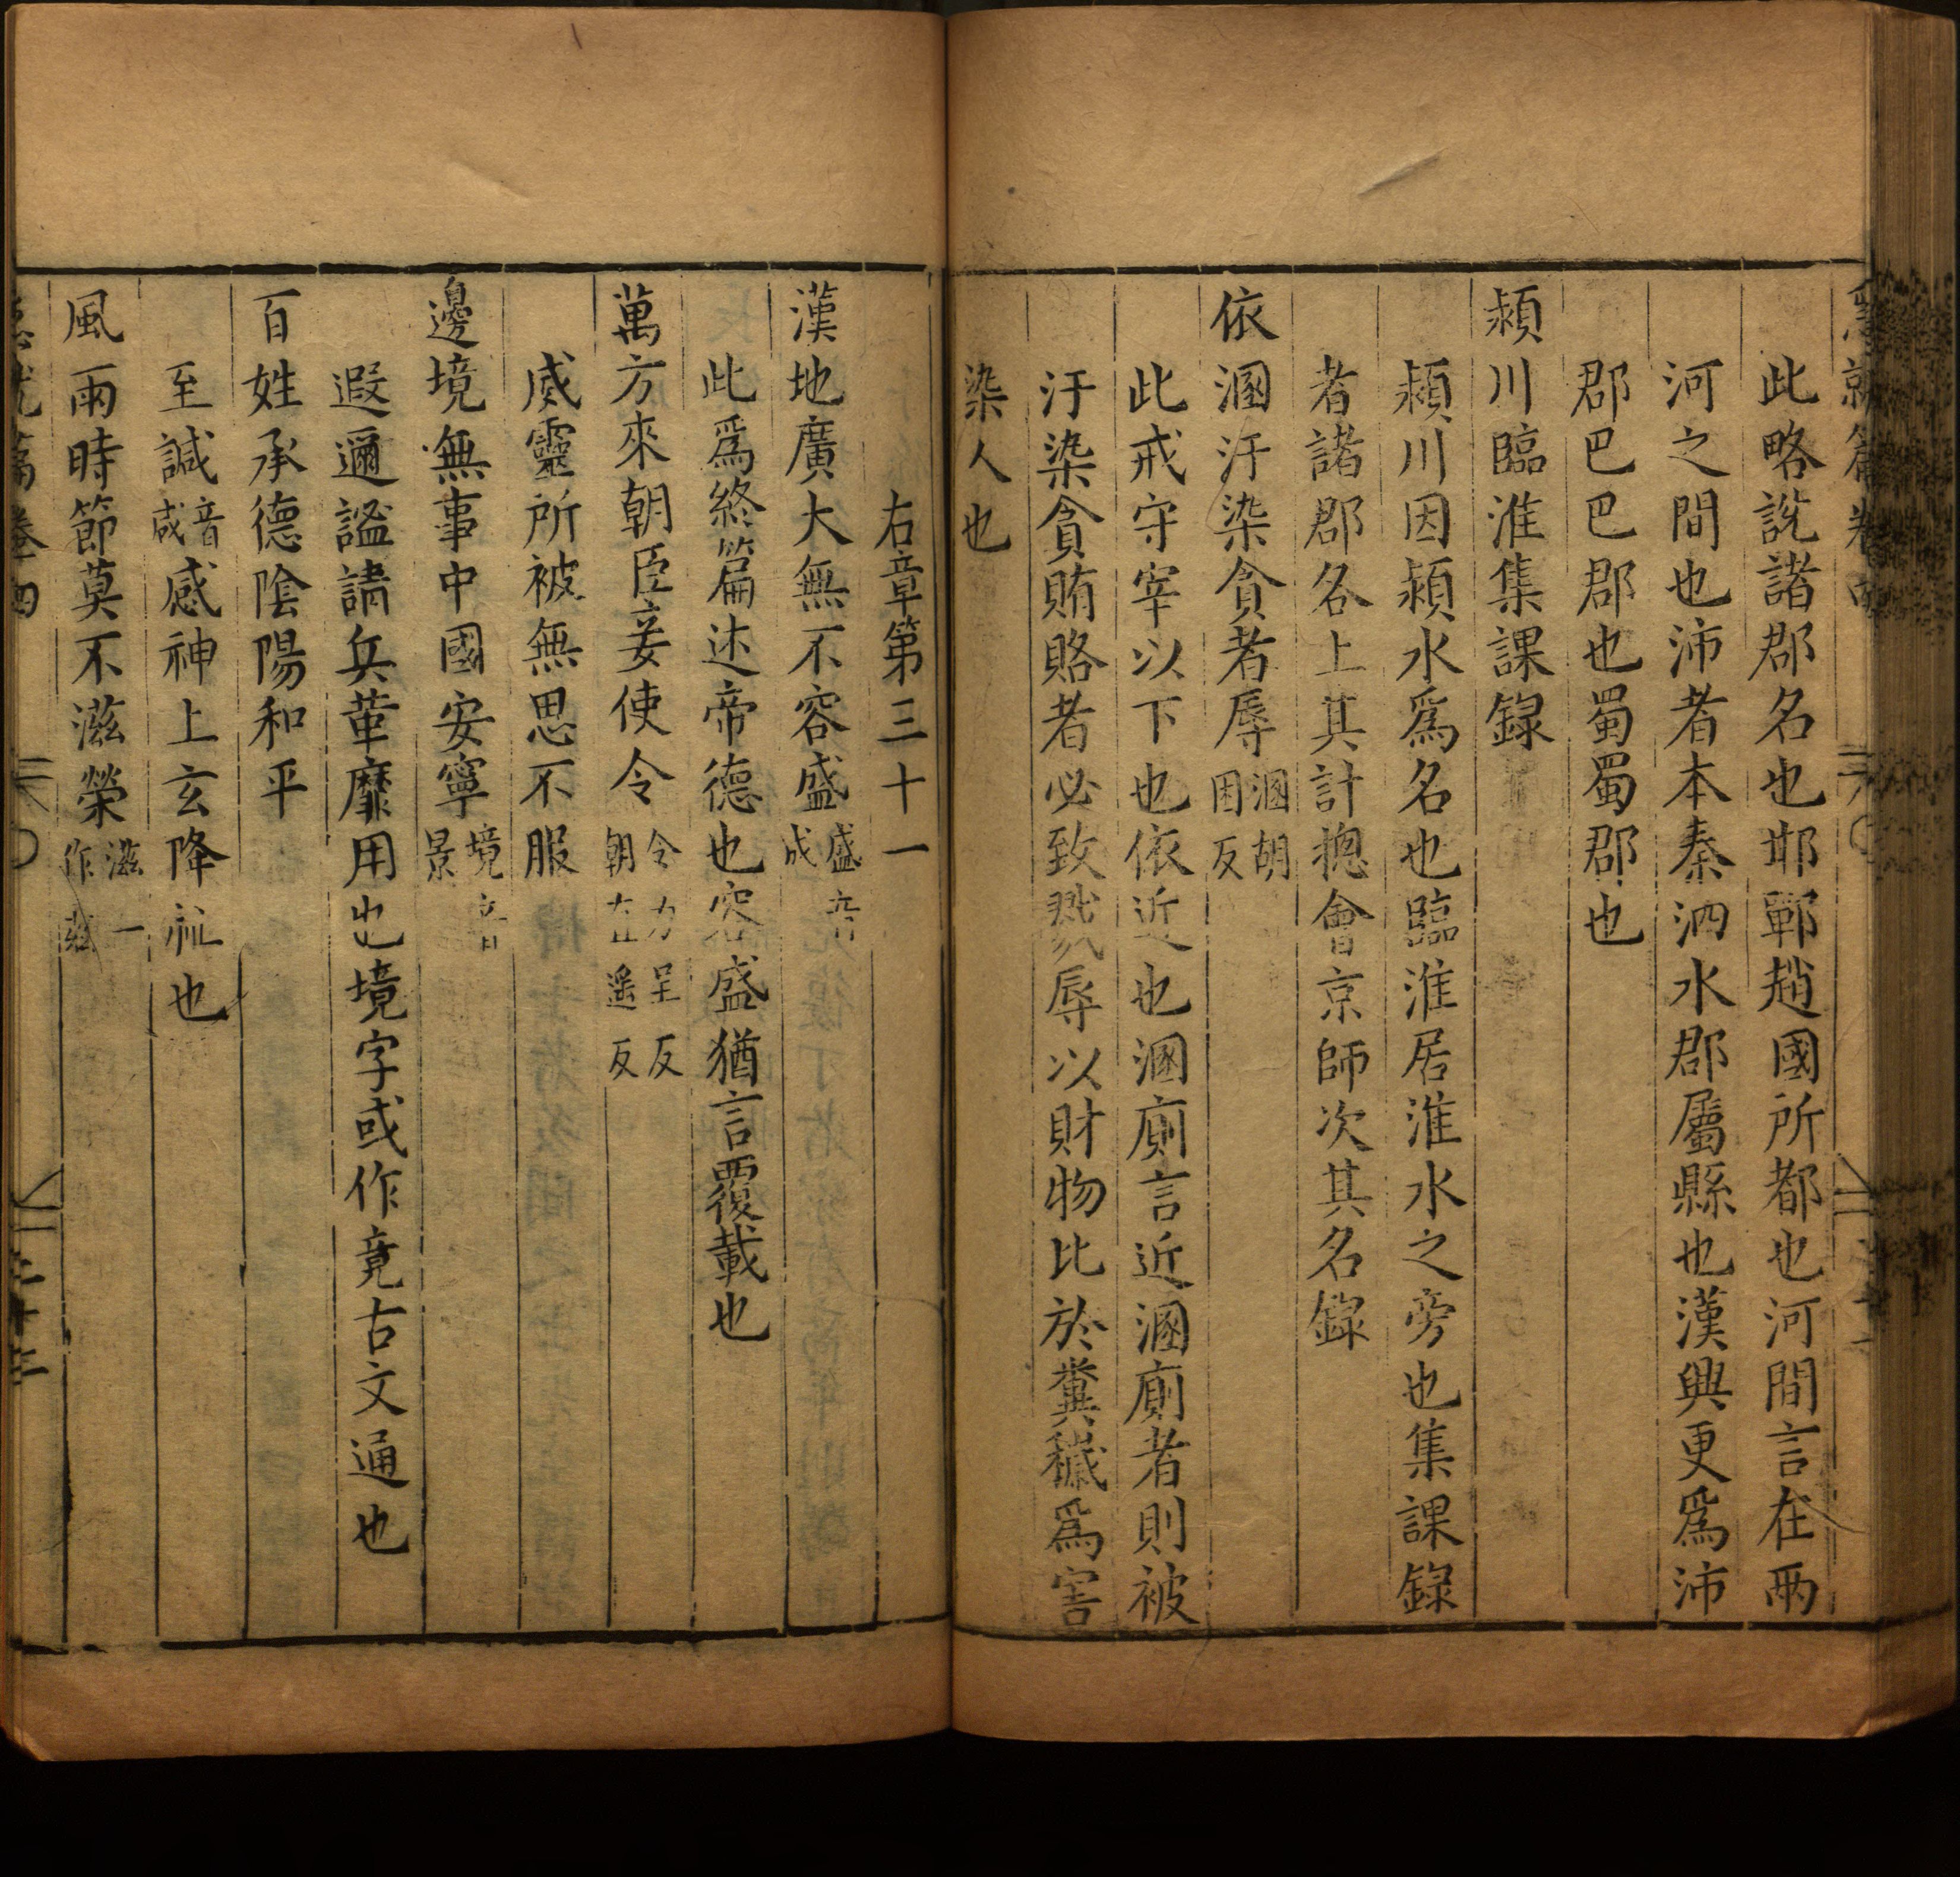 急就篇卷四
此略說諸郡名也邯鄲趙國所都也河間言在兩
河之間也沛者本秦泗水郡屬縣也漢興更爲沛
郡巴巴郡也蜀蜀郡也
潁川臨淮集課錄
潁川因潁水爲名也臨淮居淮水之旁也集課錄
者諸郡各上其計摠會京師次其名錄
依溷汙染貪者辱溷胡困反
此戒守宰以下也依近也溷廁言近溷廁者則被
汙染貪賄賂者必致戮辱以財物比於糞穢爲害
染人也
右章第三十一
漢地廣大無不容盛盛音成
此爲終篇述帝德也容盛猶言覆載也
萬方來朝臣妾使令令力呈反朝直遥反
威靈所被無思不服
邊境無事中國安寧境音景
遐邇謐靜兵革靡用也境字或作竟古文通也
百姓承德陰陽和平
至諴音咸感神上玄降祉也
風雨時節莫不滋榮滋一作茲
急就篇卷四 三十三